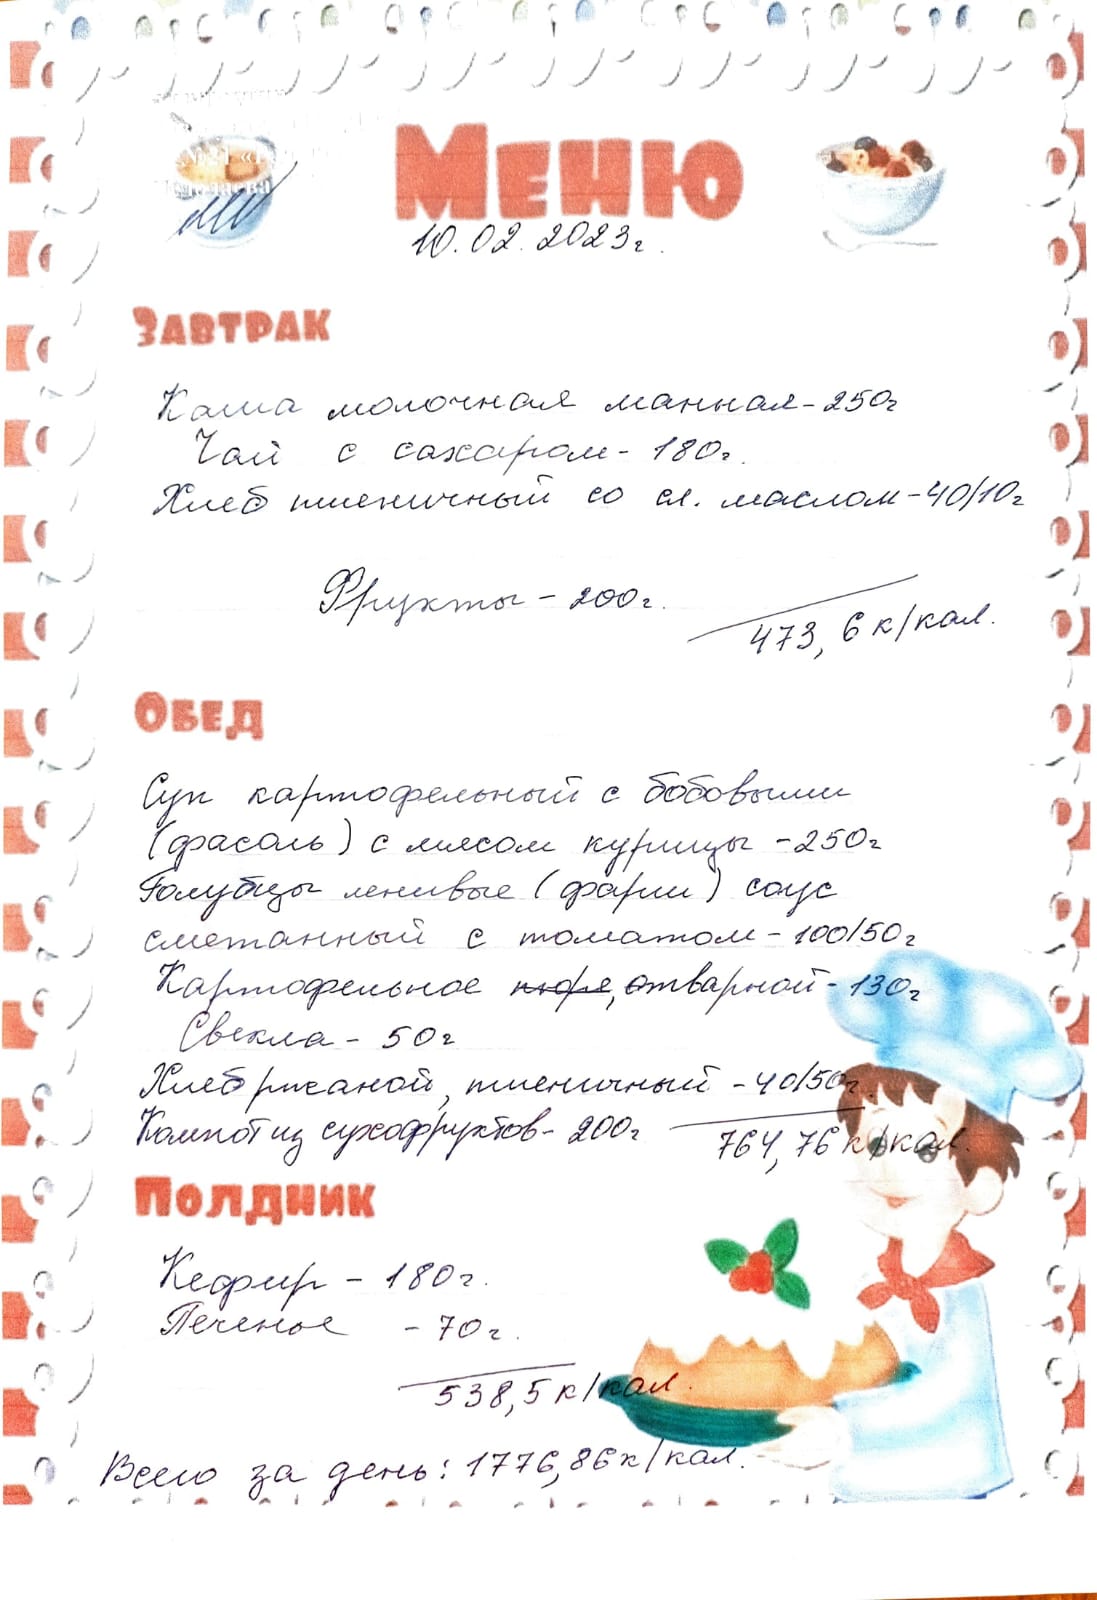 Меню
10.02.2023г.
Завтрак
Каша молочная манная - 250г
Чай с сахаром - 180г.
Хлеб пшеничный со сл. маслом - 40/10г
Фрукты - 200г.
473,6 к/кал.
Обед
Суп картофельный с бобовыми
(фасоль) с мясом курицы - 250г
Голубцы ленивые (фарш) соус
сметанный с томатом - 100/50г
Картофельное пюре, отварной - 130г
Свекла - 50г
Хлеб ржаной, пшеничный - 40/50г.
Компот из сухофруктов - 200г
764,76 к/кал.
Полдник
Кефир - 180г.
Печенье - 70г.
538,5 к/кал.
Всего за день: 1776,86 к/кал.